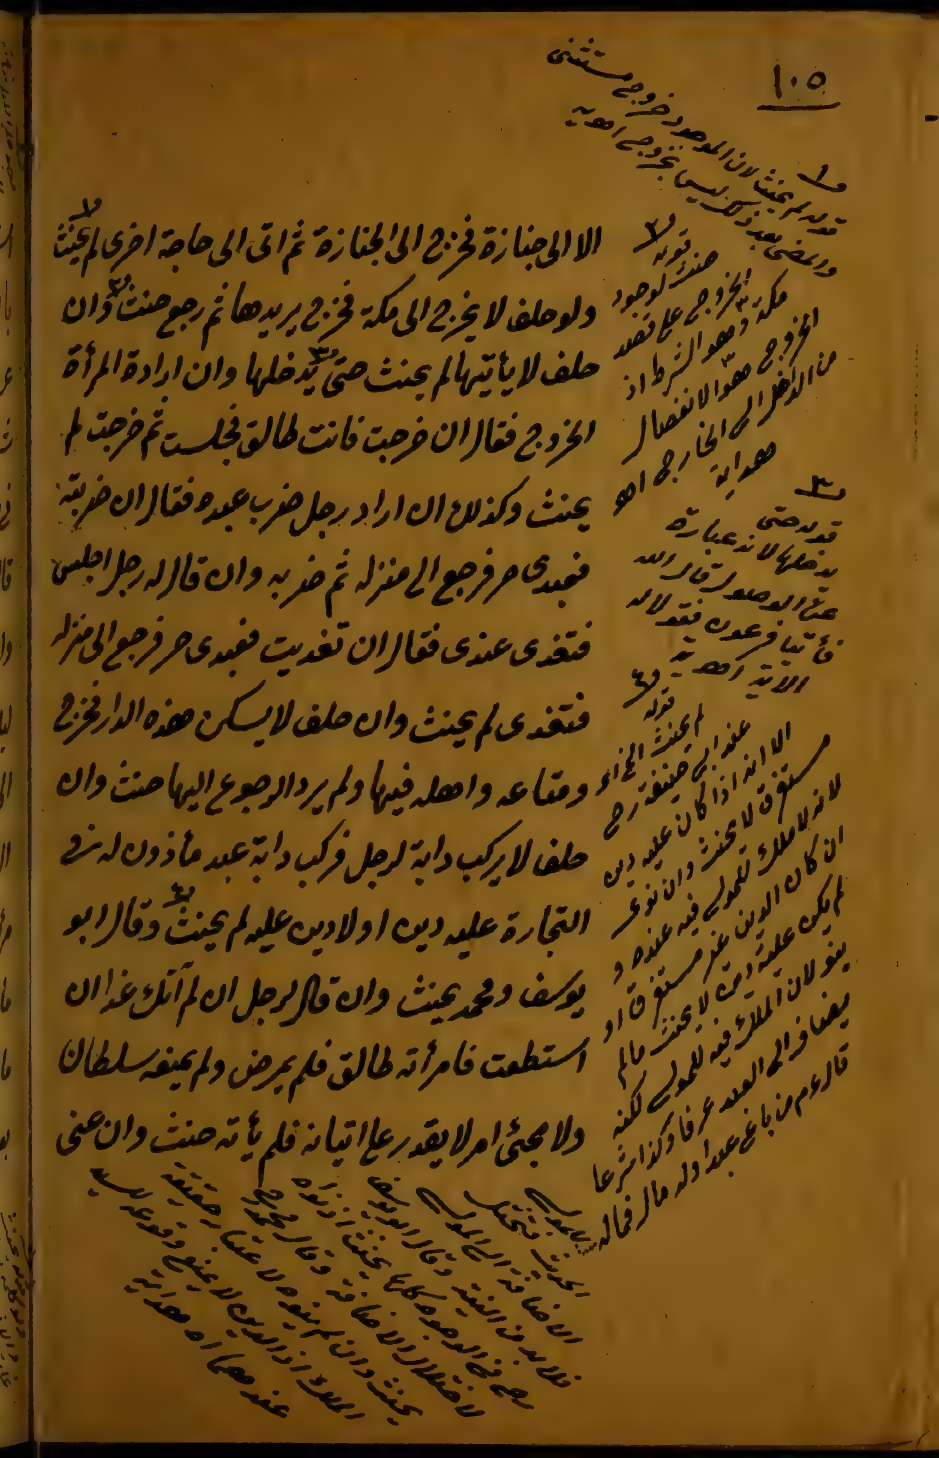 ١٠٥
الا الى جنازة فخرج الى الجنازة ثم اتى الى حاجة اخرى لم يحنث ١
ولو حلف لا يخرج الى مكة فخرج يريدها ثم رجع حنث ٢ وان
حلف لا يأتيها لم يحنث حتى ٣ يدخلها وان ارادة المرأة
الخروج فقال ان خرجت فانت طالق فجلست ثم خرجت لم
يحنث وكذلك ان اراد رجل ضرب عبده فقال ان ضربته
فعبدى حر فرجع الى منزله ثم ضربه وان قال له رجل اجلس
فتغدى عندى فقال ان تغديت فعبدى حر فرجع الى منزله
فتغدى لم يحنث وان حلف لا يسكن هذه الدار فخرج
ومتاعه واهله فيها ولم يرد الرجوع اليها حنث وان
حلف لا يركب دابة لرجل فركب دابة عبد مأذون له فى
التجارة عليه دين او لا دين عليه لم يحنث ٤ وقال ابو
يوسف ومحمد يحنث وان قال لرجل ان لم آتك غدا ان
استطعت فامرأته طالق فلم يمرض ولم يمنعه سلطان
ولا مجئ امر لا يقدر على اتيانه فلم يأته حنث وان عنى
١
قوله لم يحنث لان الموجود خروج مستثنى
والمضى بعد ذلك ليس بخروج اه هداية
٢
قوله
حنث لوجود
الخروج على قصد
مكة وهو الشرط اذ
الخروج هو الانفصال
من الداخل الى الخارج اه
هداية
٣
قوله حتى
يدخلها لانه عبارة
عن الوصول قال الله
فأتيا فرعون فقولا له
الآية اه هداية
٤
قوله
لم يحنث الخ اى
عند ابى حنيفة رح
الا انه اذا كان عليه دين
مستغرق لا يحنث وان نوى
لانه لا ملك للمولى فيه عنده و
ان كان الدين غير مستغرق او
لم يكن عليه دين لا يحنث مالم
ينو لان الملك فيه للمولى لكنه
يضاف الى العبد عرفا وكذا شرعا
قال ء م من باع عبدا وله مال فماله
الحديث فتختل
الاضافة الى المولى
فلا بد من النية وقال ابو يوسف
رح فى الوجوه كلها يحنث اذا نواه
لاختلال الاضافة وقال محمد رح
يحنث وان لم ينوه لاعتبار حقيقة
الملك اذ الدين لا يمنع وقوعه للسيد
عندهما اه هداية